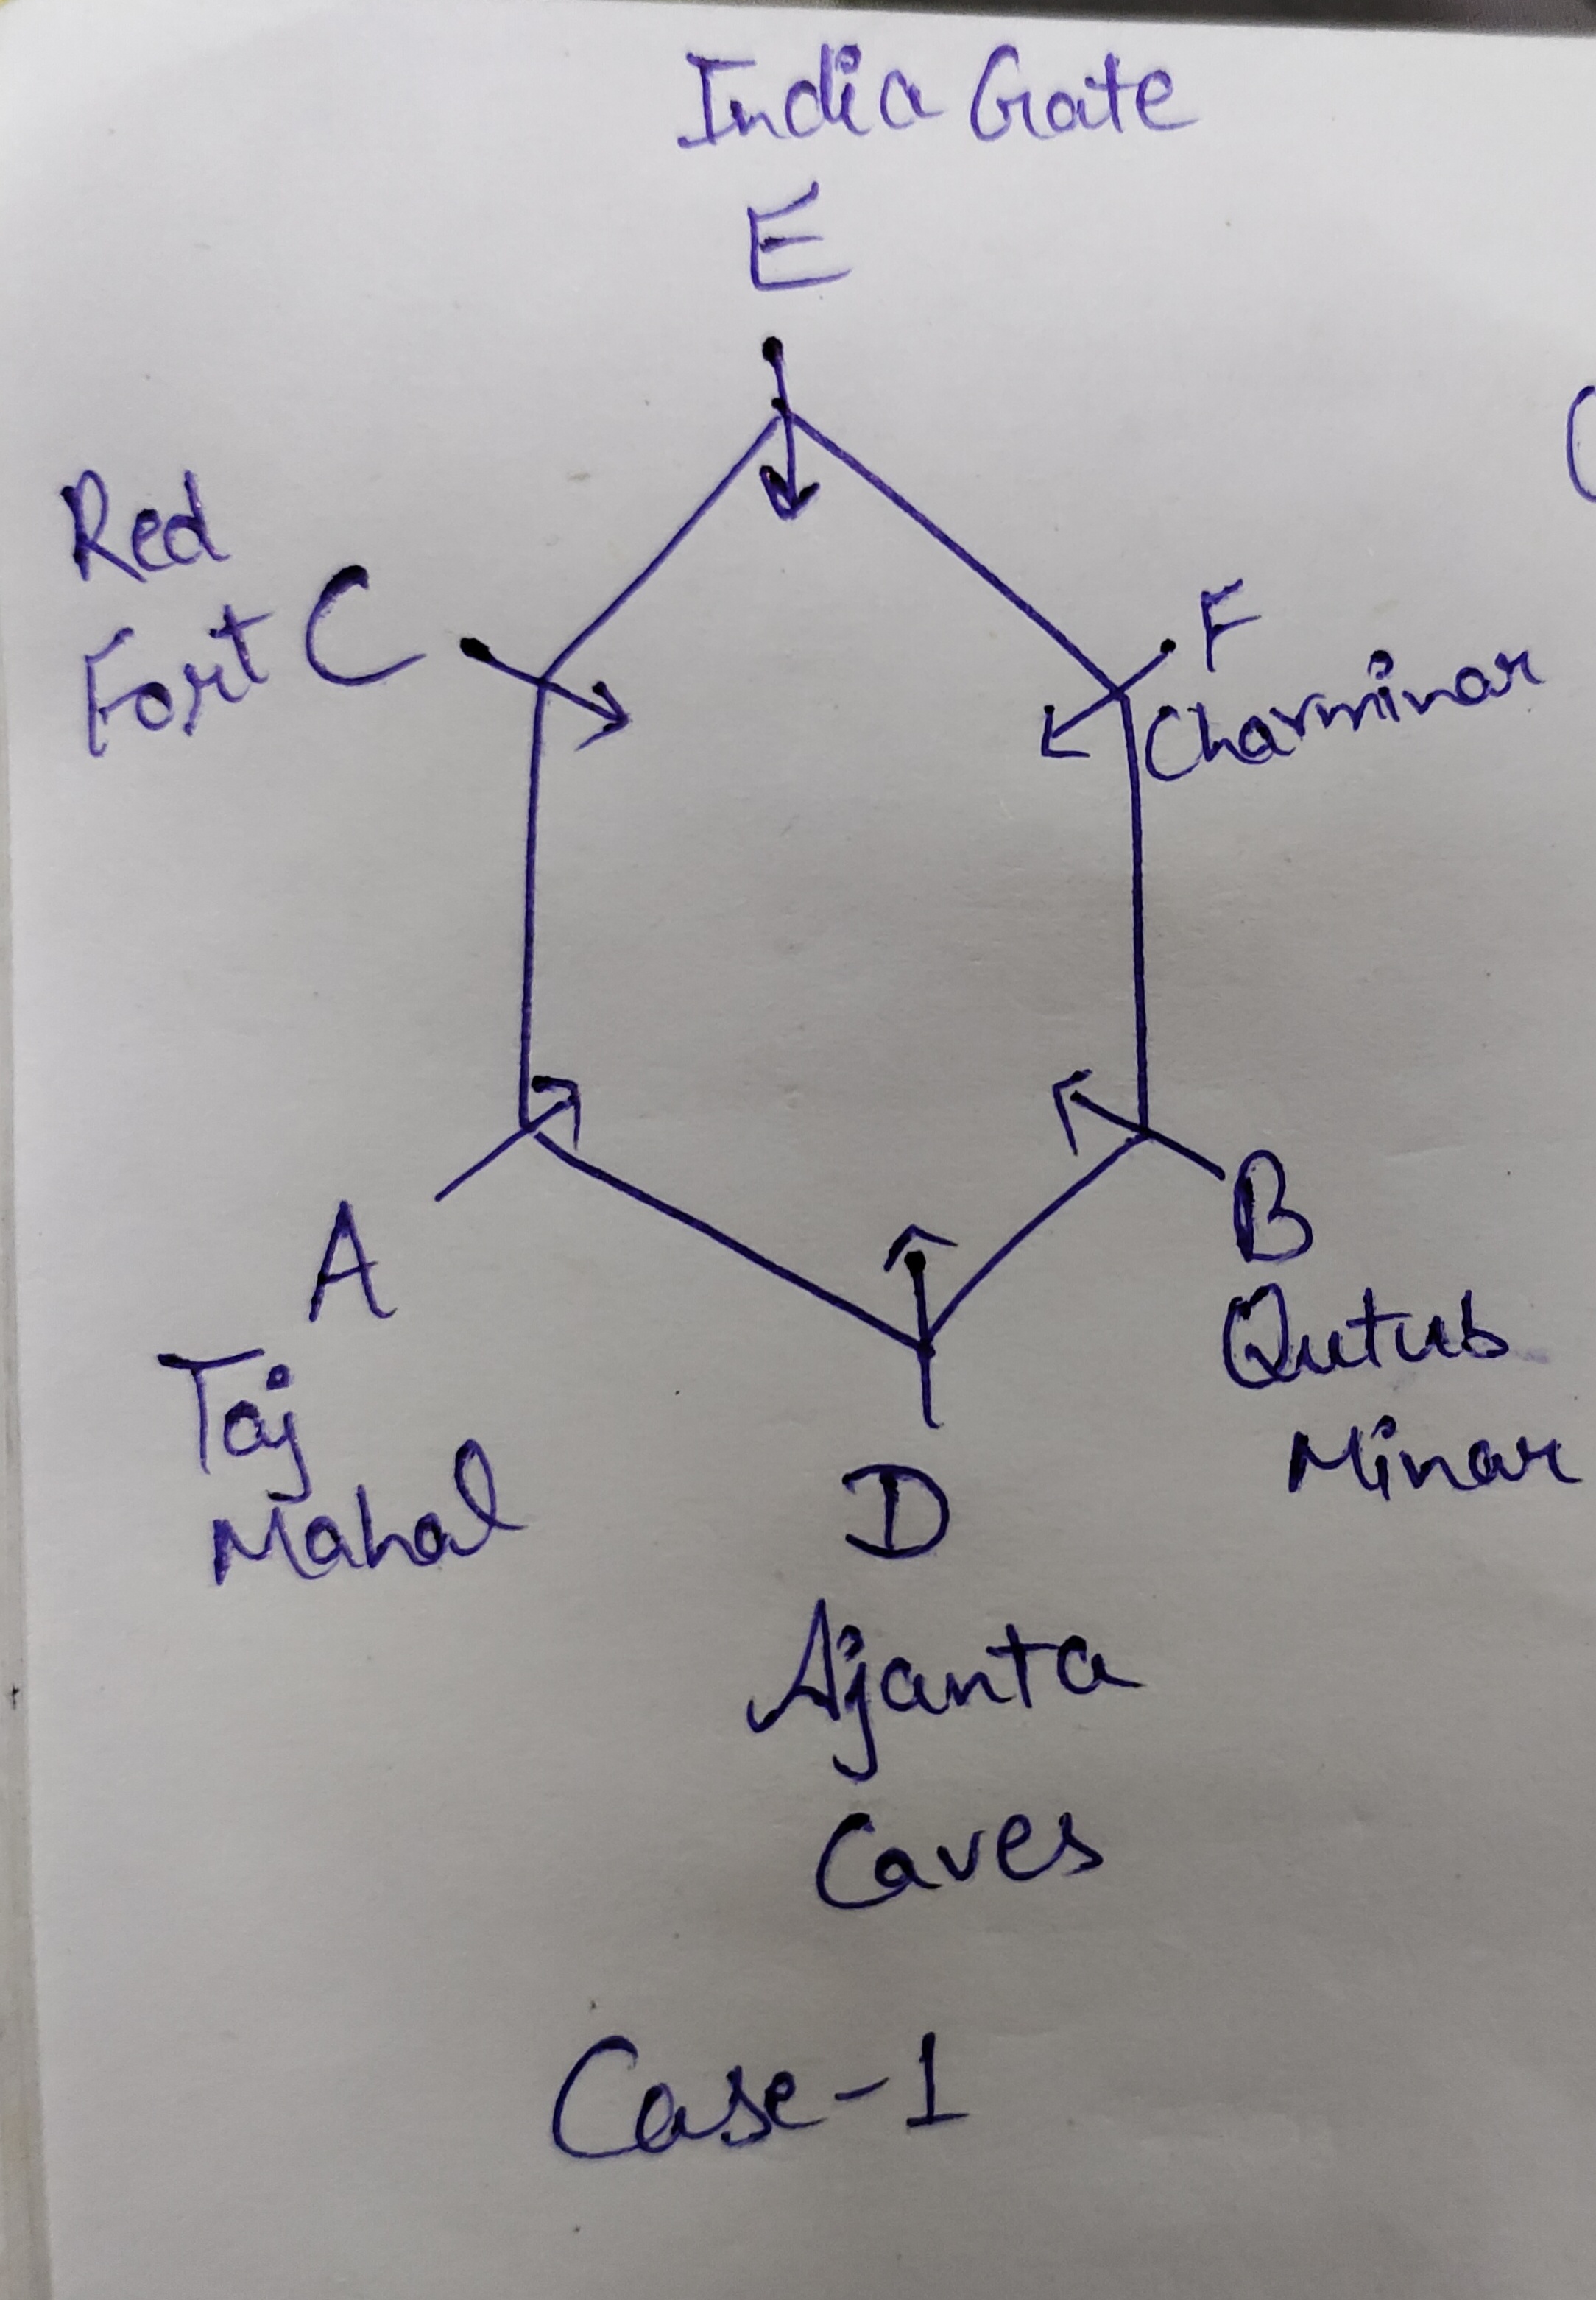 India Gate
E
Red
Fort C
F
Charminar
A
Taj
Mahal
B
Qutub
Minar
D
Ajanta
Caves
Case-1